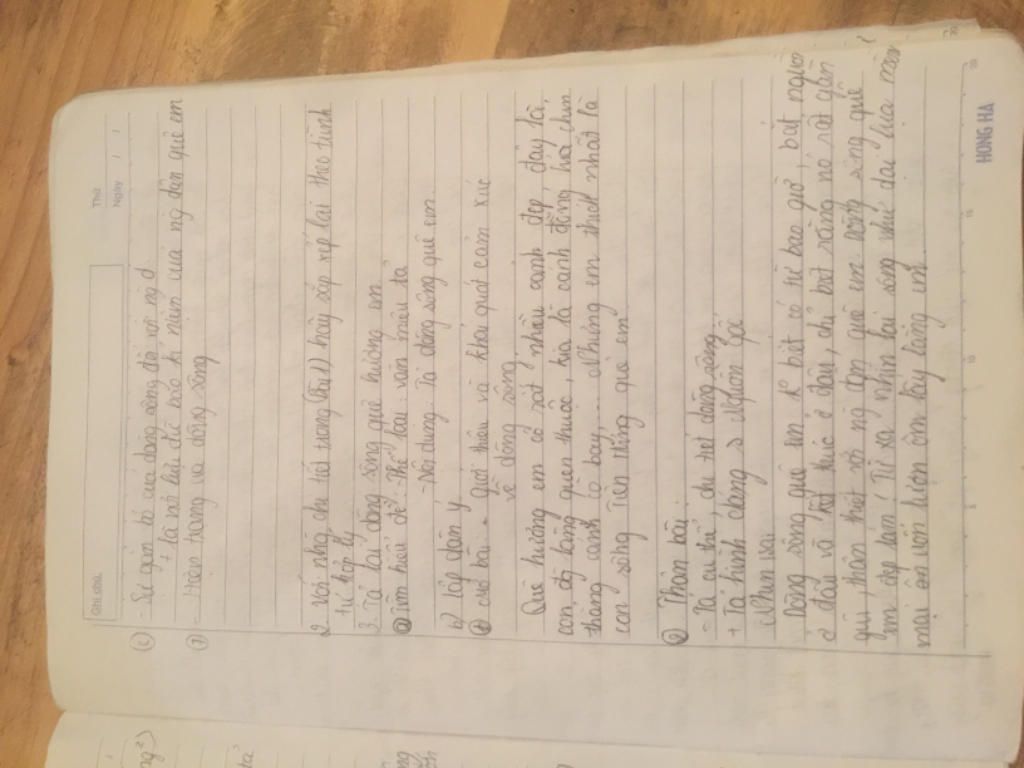 Ghi chú:
Thứ
Ngày / /
c - Sự gắn bó của dòng sông đó với ng d
+ Lại nở hai để nào kỉ niệm của ng dân quê em
d - Hiện trạng và dòng sông
2. Với nhg chi tiết trong (bài 1) hãy sắp xếp lại theo trình
tự hợp lý
3. Tả lại dòng sông quê hương em
a Tìm hiểu đề: - Thể loại: văn miêu tả
- Nội dung: Tả dòng sông quê em
b) lập dàn ý
Mở bài. Giới thiệu và khái quát cảm xúc
về dòng sông
Quê hương em có rất nhiều cảnh đẹp, đây là,
con đò làng quen thuộc, kia là cánh đồng lúa chín
thẳng cánh cò bay,... Nhưng em thích nhất là
con sông Tiên thắng quê em
Thân bài:
- Tả cụ thể, chi tiết dòng sông
+ Tả hình dáng → Nguồn gốc
Dòng sông quê em k biết có từ bao giờ, bắt nguồn
ở đâu và kết thúc ở đâu, chỉ biết rằng nó rất gần
gũi, thân thiết với ng dân quê em sông quê
em đẹp lắm! Từ xa nhìn lại sông như dải lụa mềm
mại ôn uốn lượn ôm lấy làng em
HONG HA